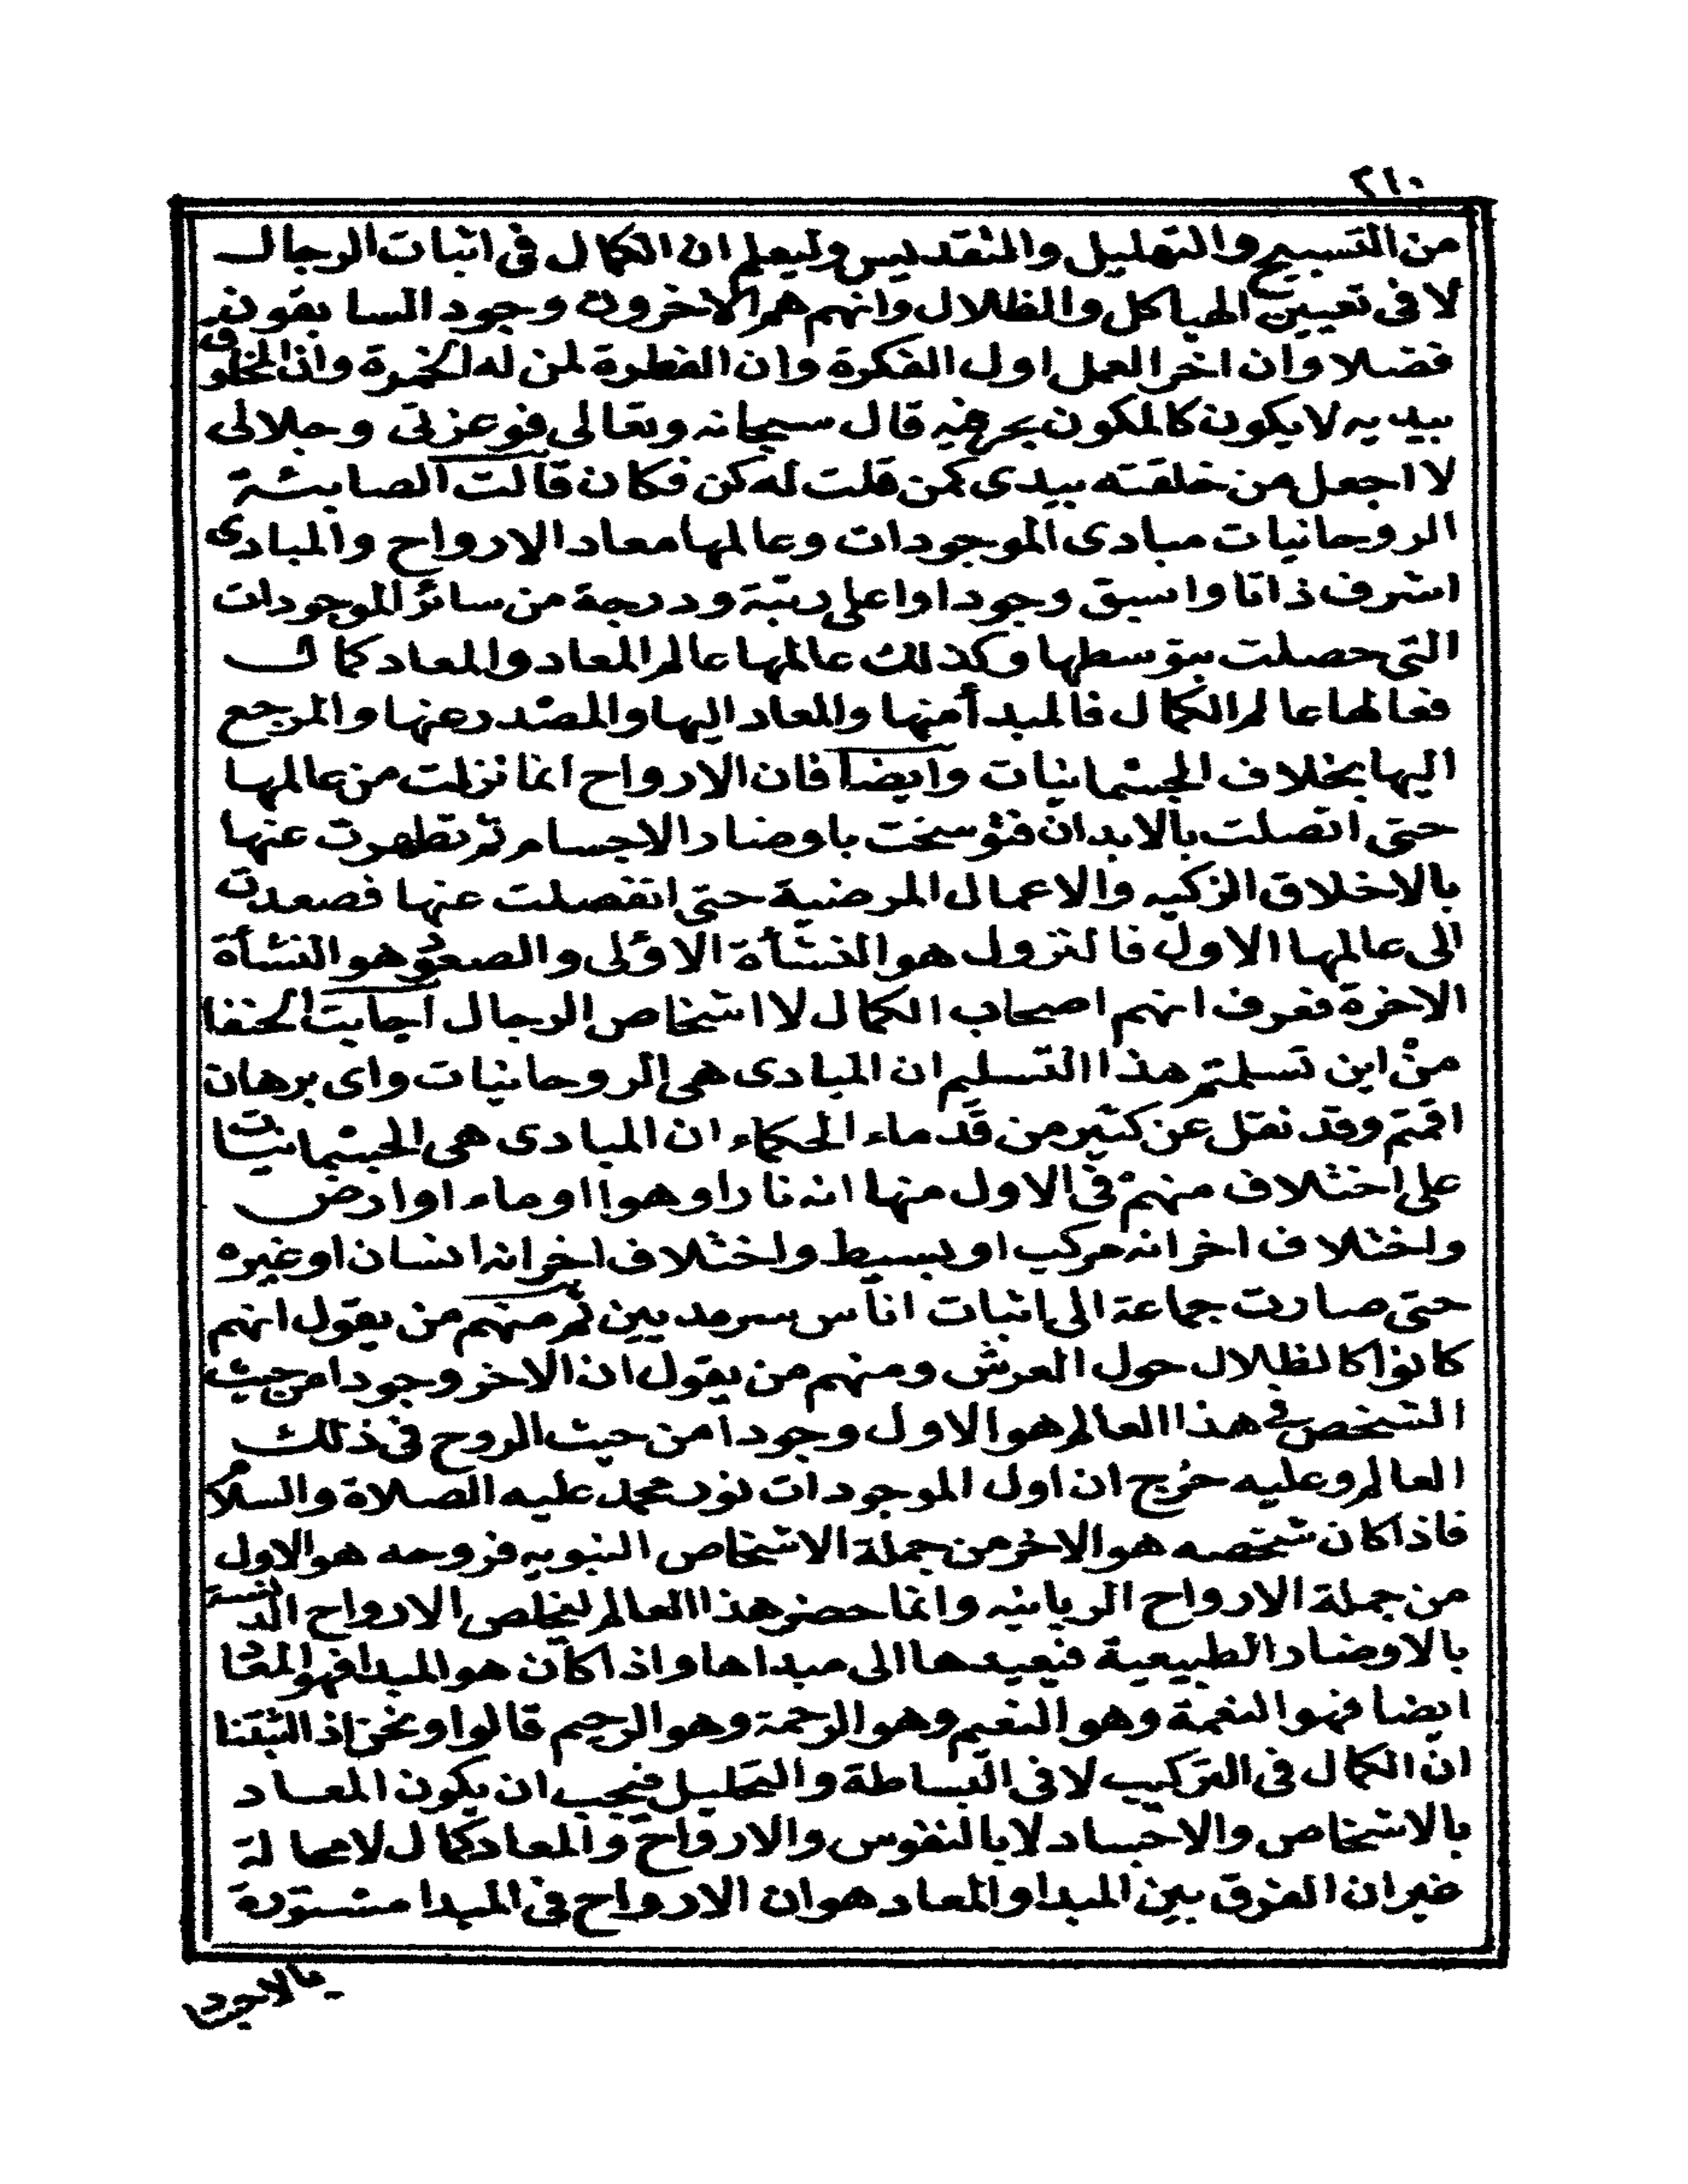 ٢١٠
من التسبيح والتهليل والتقديس وليعلم ان الكمال فى اثبات الرجال
لا فى تعيين الهياكل والظلال وانهم هم الاخرون وجود السابقون
فضلا وان اخر العمل اول الفكرة وان الفطرة لمن له الخمرة وان المخلوق
بيديه لا يكون كالمكون بحرفيه قال سبحانه وتعالى فوعزتى وجلالى
لا اجعل من خلقته بيدى كمن قلت له كن فكان قالت الصابئة
الروحانيات مبادى الموجودات وعالمها معاد الارواح والمبادى
اشرف ذاتا واسبق وجودا واعلى رتبة ودرجة من سائر الموجودات
التى حصلت بتوسطها وكذلك عالمها عالم المعاد والمعاد كمال
فعالمها عالم الكمال فالمبدأ منها والمعاد اليها والمصدر عنها والمرجع
اليها بخلاف الجسمانيات وايضا فان الارواح انما نزلت من عالمها
حتى اتصلت بالابدان فتوسخت باوضار الاجسام ثم تطهرت عنها
بالاخلاق الزكيه والاعمال المرضية حتى انفصلت عنها فصعدت
الى عالمها الاول فالنزول هو النشأة الاولى والصعود هو النشأة
الاخرة فعرف انهم اصحاب الكمال لا اشخاص الرجال اجابت الحنفا
من اين تسلمتم هذا التسليم ان المبادى هى الروحانيات واى برهان
اقمتم وقد نقل عن كثير من قدماء الحكماء ان المبادى هى الجسمانيات
على اختلاف منهم فى الاول منها انه نار او هوا او ماء او ارض
واختلاف اخر انه مركب او بسيط واختلاف اخر انه انسان او غيره
حتى صارت جماعة الى اثبات اناس سرمديين ثم منهم من يقول انهم
كانوا كالظلال حول العرش ومنهم من يقول ان الاخر وجودا من حيث
الشخص فى هذا العالم هو الاول وجودا من حيث الروح فى ذلك
العالم وعليه خرج ان اول الموجودات نور محمد عليه الصلاة والسلام
فاذا كان شخصه هو الاخر من جملة الاشخاص النبويه فروحه هو الاول
من جملة الارواح الربانيه وانما حضر هذا العالم ليخلص الارواح الدنسة
بالاوضار الطبيعية فيعيدها الى مبداها واذا كان هو المبدا فهو المعاد
ايضا فهو النعمة وهو النعيم وهو الرحمة وهو الرحيم قالوا ونحن اذ اثبتنا
ان الكمال فى التركيب لا فى البساطة والتحليل فيجب ان يكون المعاد
بالاشخاص والاجساد لا بالنفوس والارواح والمعاد كمال لا محالة
غير ان الفرق بين المبدا والمعاد هو ان الارواح فى المبدا مستورة
بالاجساد